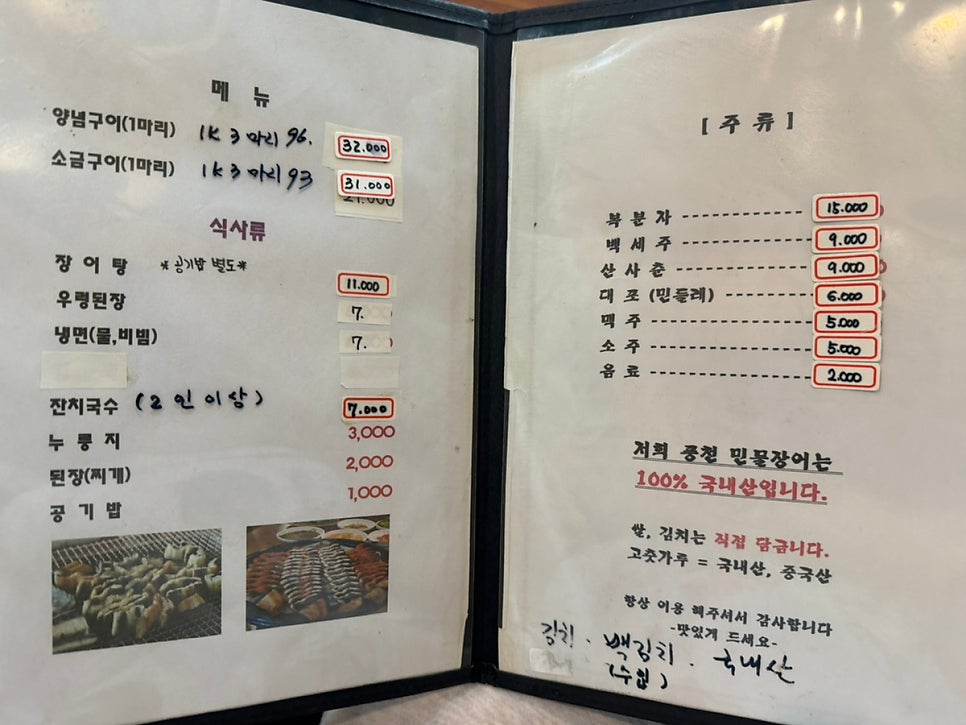 메 뉴
양념구이(1마리) 1K 3마리 96. 32.000
소금구이(1마리) 1K 3마리 93 31.000
식사류
장 어 탕 *공기밥 별도* 11.000
우렁된장 7.
냉면(물,비빔) 7.
잔치국수 (2인이상) 7.000
누 룽 지 3,000
된장(찌개) 2,000
공 기 밥 1,000
[ 주 류 ]
복 분 자 15.000
백 세 주 9.000
산 사 춘 9.000
대 포 (민들레) 6.000
맥 주 5.000
소 주 5.000
음 료 2.000
저희 풍천 민물장어는
100% 국내산입니다.
쌀, 김치는 직접 담금니다.
고춧가루 = 국내산, 중국산
항상 이용 해주셔서 감사합니다
-맛있게 드세요-
김치 . 백김치 . 국내산
(수입)